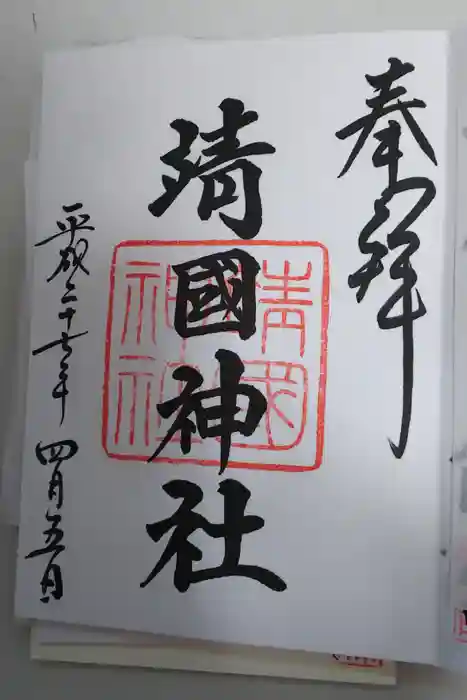 奉拝
靖國神社
靖國
神社
平成二十七年 四月五日